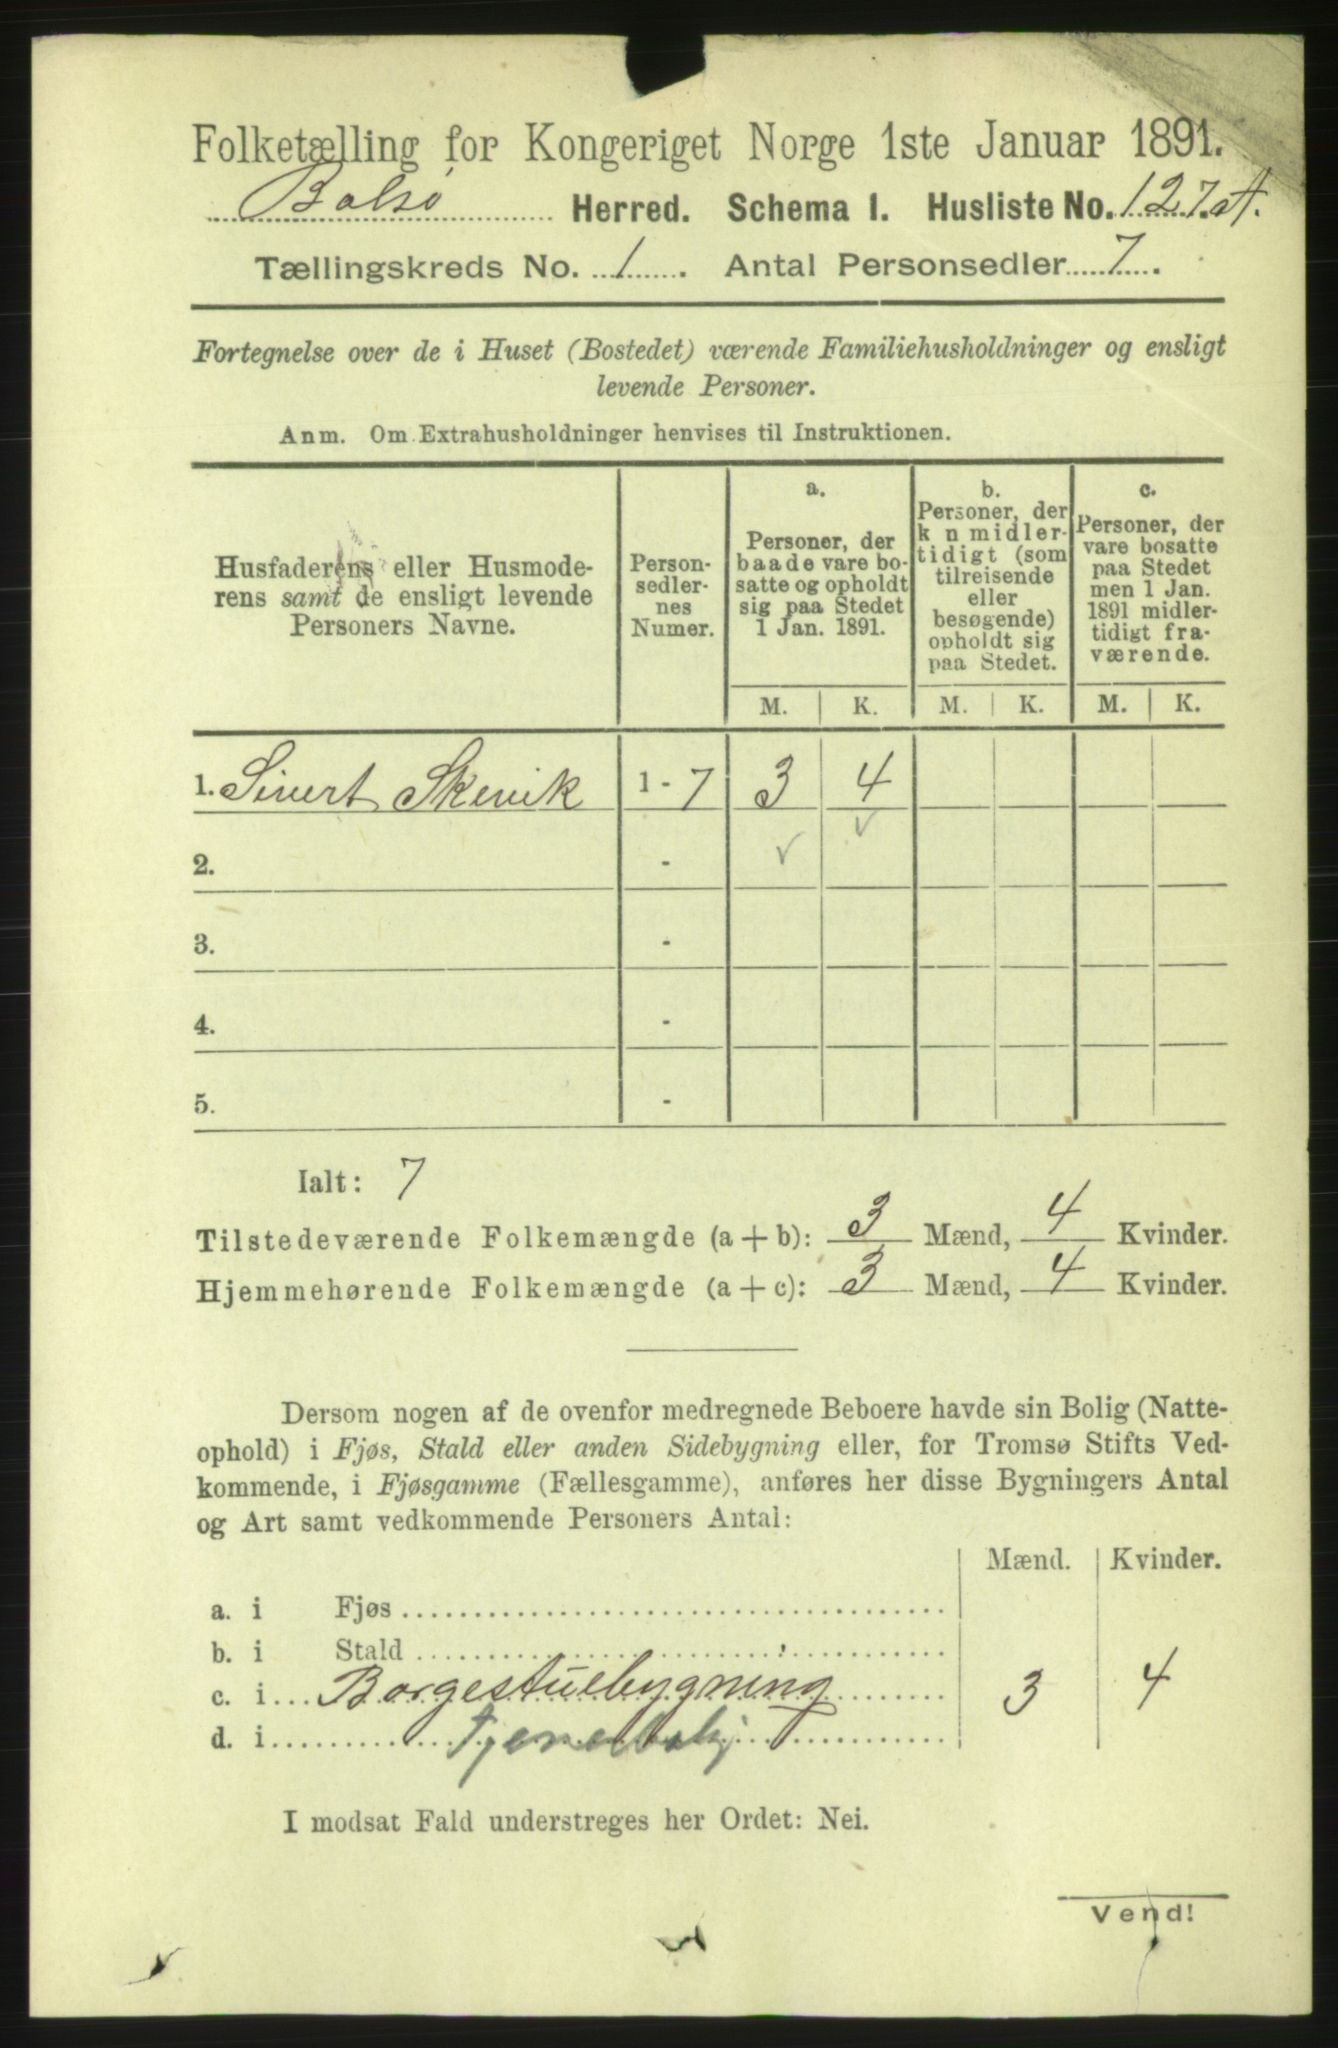 Folketælling for Kongeriget Norge 1ste Januar 1891.
Bolsø Herred. Schema I. Husliste No. 127.A.
Tællingskreds No. 1. Antal Personsedler 7.
Fortegnelse over de i Huset (Bostedet) værende Familiehusholdninger og ensligt
levende Personer.
Anm. Om Extrahusholdninger henvises til Instruktionen.
Husfaderens eller Husmode-
rens samt de ensligt levende
Personers Navne.
Person-
sedler-
nes
Numer.
a.
Personer, der
baade vare bo-
satte og opholdt
sig paa Stedet
1 Jan. 1891.
b.
Personer, der
k n midler-
tidigt (som
tilreisende
eller
besøgende)
opholdt sig
paa Stedet.
c.
Personer, der
vare bosatte
paa Stedet
men 1 Jan.
1891 midler-
tidigt fra-
værende.
M. K. M. K. M. K.
1. Sivert Skevik 1 - 7 3 4
2. -
3. -
4. -
5. -
Ialt: 7
Tilstedeværende Folkemængde (a + b): 3 Mænd, 4 Kvinder.
Hjemmehørende Folkemængde (a + c): 3 Mænd, 4 Kvinder.
Dersom nogen af de ovenfor medregnede Beboere havde sin Bolig (Natte-
ophold) i Fjøs, Stald eller anden Sidebygning eller, for Tromsø Stifts Ved-
kommende, i Fjøsgamme (Fællesgamme), anføres her disse Bygningers Antal
og Art samt vedkommende Personers Antal:
Mænd. Kvinder.
a. i Fjøs
b. i Stald
c. i Borgestuebygning 3 4
d. i
I modsat Fald understreges her Ordet: Nei.
Vend!